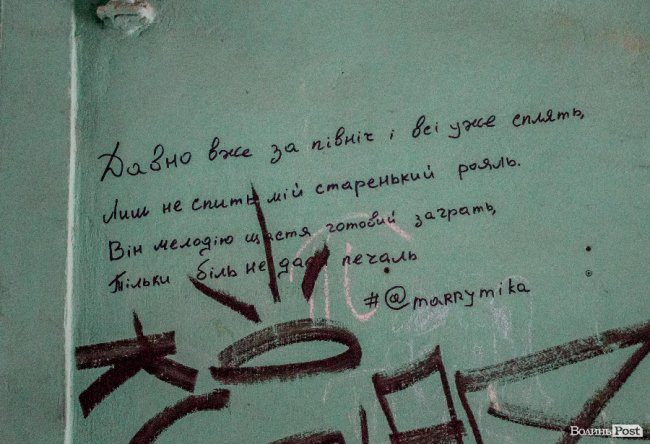 Давно вже за північ і всі уже сплять,
Лиш не спить мій старенький рояль.
Він мелодію щастя готовий заграть,
Тільки біль не дає печаль
#@marrymika
ВолиньPost